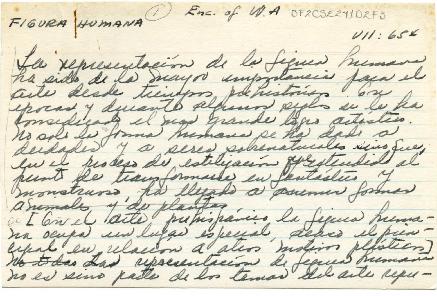 FIGURA HUMANA
1
Enc. of W.A
DF2C5E241D2F3
VII: 654
La representación de la figura humana
ha sido de la mayor importancia para el
arte desde tiempos prehistóricos. En
épocas y durante algunos siglos se le ha
considerado el más grande logro artístico.
No solo la forma humana se ha dado a
deidades y a seres sobrenaturales sino que,
en el proceso de estilización, el
punto de transformarla en fantástico y
monstruoso ha llegado a asumir formas
animales y de plantas
[En el arte prehispánico la figura huma-
na ocupa un lugar especial, siendo el prin-
cipal en relación a otros motivos plásticos]
La representación de figura humana
no es sino parte de los temas del arte repre-